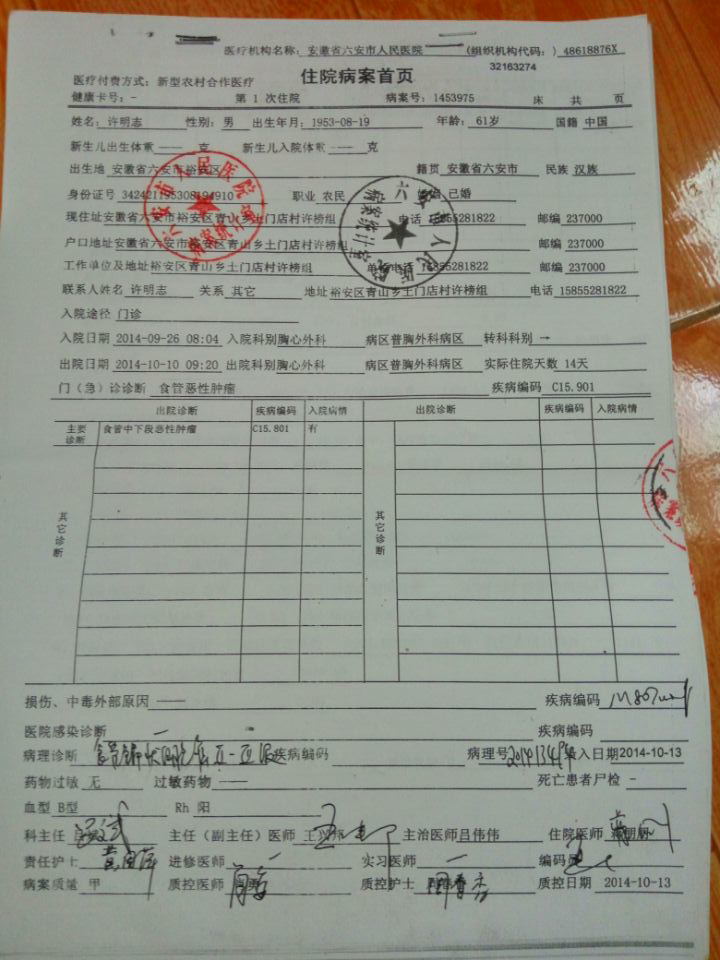 医疗机构名称: 安徽省六安市人民医院 (组织机构代码: ) 48618876X
32163274
医疗付费方式: 新型农村合作医疗 住院病案首页
健康卡号: - 第 1 次住院 病案号: 1453975 床 共 页
姓名: 许明志 性别: 男 出生年月: 1953-08-19 年龄: 61岁 国籍 中国
新生儿出生体重 —— 克 新生儿入院体重 —— 克
出生地 安徽省六安市裕安区 籍贯 安徽省六安市 民族 汉族
身份证号 342421195308194910 职业 农民 已婚
现住址 安徽省六安市裕安区青山乡土门店村许榜组 电话 15855281822 邮编 237000
户口地址 安徽省六安市裕安区青山乡土门店村许榜组 邮编 237000
工作单位及地址 裕安区青山乡土门店村许榜组 单位电话 15855281822 邮编 237000
联系人姓名 许明志 关系 其它 地址 裕安区青山乡土门店村许榜组 电话 15855281822
入院途径 门诊
入院日期 2014-09-26 08:04 入院科别 胸心外科 病区 普胸外科病区 转科科别 →
出院日期 2014-10-10 09:20 出院科别 胸心外科 病区 普胸外科病区 实际住院天数 14天
门（急）诊诊断 食管恶性肿瘤 疾病编码 C15.901
出院诊断 疾病编码 入院病情 出院诊断 疾病编码 入院病情
主要诊断 食管中下段恶性肿瘤 C15.801 有
其它诊断 其它诊断
损伤、中毒外部原因 —— 疾病编码
医院感染诊断 — 疾病编码
病理诊断 疾病编码 病理号 输入日期 2014-10-13
药物过敏 无 过敏药物 —— 死亡患者尸检 -
血型 B型 Rh 阳
科主任 主任（副主任）医师 主治医师 吕伟伟 住院医师
责任护士 进修医师 — 实习医师 — 编码员
病案质量 甲 质控医师 质控护士 质控日期 2014-10-13